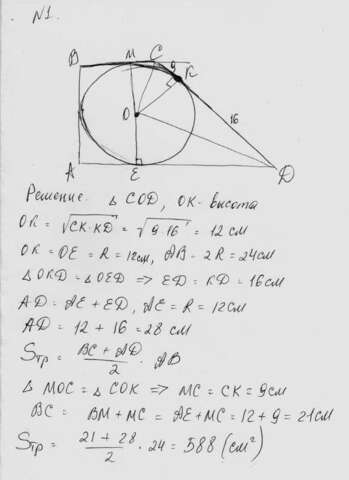 N1.
M
C
B
9
K
O
16
A
E
D
Решение. △ COD, OK - высота
OK = √CK·KD = √9·16 = 12 см
OK = OE = R = 12см, AB = 2R = 24см
△ OKD = △ OED => ED = KD = 16см
AD = AE + ED, AE = R = 12см
AD = 12 + 16 = 28 см
Sтр = (BC + AD)/2 · AB
△ MOC = △ COK => MC = CK = 9см
BC = BM + MC = AE + MC = 12 + 9 = 21см
Sтр = (21 + 28)/2 · 24 = 588 (см²)